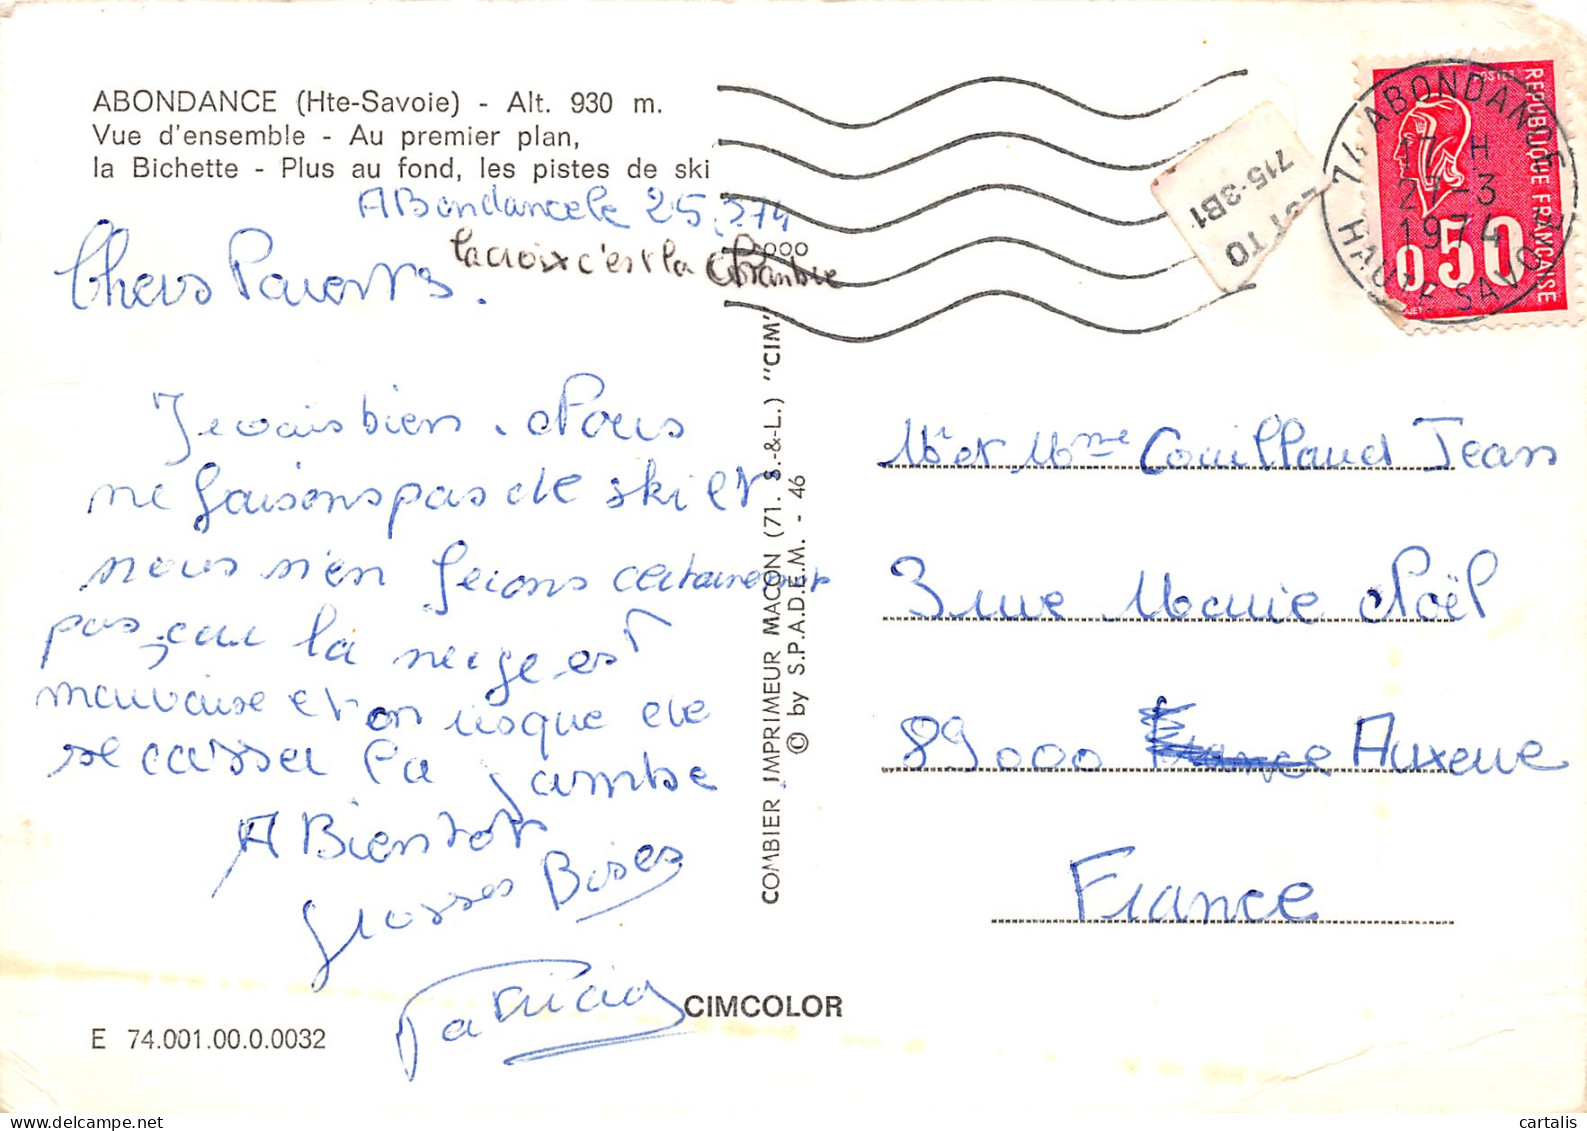 ABONDANCE (Hte-Savoie) - Alt. 930 m.
Vue d'ensemble - Au premier plan,
la Bichette - Plus au fond, les pistes de ski
ABondance le 25.3.74
la croix c'est la chambre
Chers Parents.
Je vais bien. Nous
ne faisons pas de ski et
nous n'en ferons certainement
pas, car la neige est
mauvaise et on risque de
se casser la jambe
A Bientot
grosses Bises
Patricia
CIMCOLOR
E 74.001.00.0.0032
COMBIER IMPRIMEUR MACON (71. S.-&-L.) "CIM"
© by S.P.A.D.E.M. - 46
715-3B1
LOT TO
74 ABONDANCE
17 H
27-3
1974
HAUTE SAVOIE
POSTES
REPUBLIQUE FRANCAISE
0,50
Mr et Mme Couillaud Jean
3 rue Marie Noël
89000 Auxerre
France
cartalis